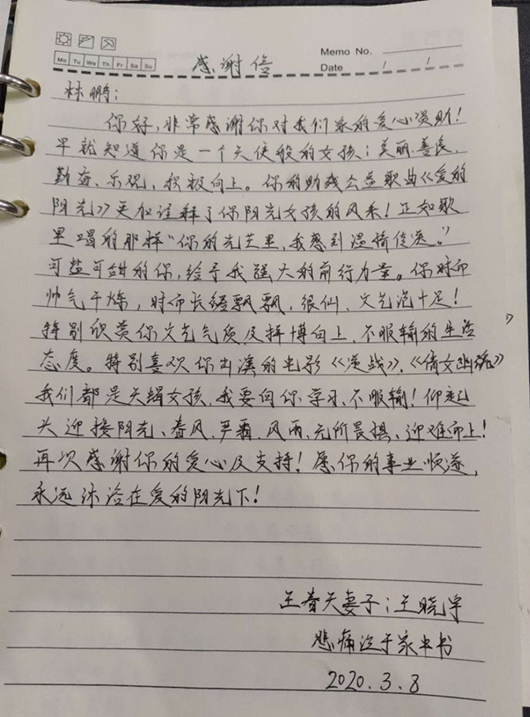 Memo No.
Mo Tu We Th Fr Sa Su
Date / /
感谢信
林鹏:
你好,非常感谢你对我们家的爱心资助!
早就知道你是一个天使般的女孩;美丽、善良、
勤奋、乐观、积极向上。你的助残公益歌曲《爱的
阳光》更加诠释了你阳光女孩的风采!正如歌
里唱的那样“你的光芒里,我感到温情传递。”
可盐可甜的你,给予我强大的前行力量。你时而
帅气干练,时而长裙飘飘,很仙、文艺范十足!
特别欣赏你文艺气质及拼搏向上、不服输的生活
态度。特别喜欢你出演的电影《漠战》、《倩女幽魂》
我们都是天蝎女孩,我要向你学习、不服输!仰起
头迎接阳光、春风、严霜、风雨、无所畏惧、迎难而上!
再次感谢你的爱心及支持!愿你的事业顺遂,
永远沐浴在爱的阳光下!
王春天妻子:王晓宇
悲痛泣于家中书
2020.3.8